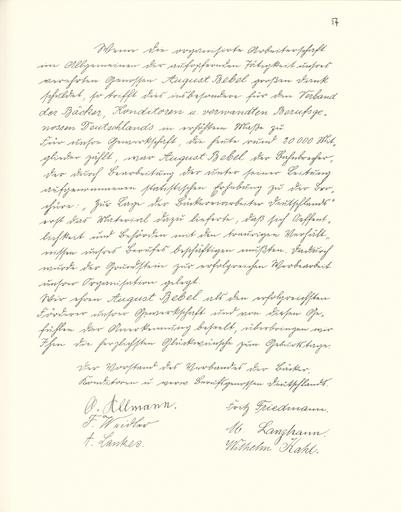 57
Wenn die organisierte Arbeiterschaft
im Allgemeinen der aufopfernden Tätigkeit unsres
verehrten Genossen August Bebel großen Dank
schuldet, so trifft dies insbesondere für den Verband
der Bäcker, Konditoren u. verwandten Berufsge-
nossen Deutschlands in erhöhtem Maße zu
Für unsre Gewerkschaft, die heute rund 20 000 Mit-
glieder zählt, war August Bebel der Bahnbrecher,
der durch Bearbeitung der unter seiner Leitung
aufgenommenen statistischen Erhebung zu der Bro-
chüre: „Zur Lage der Bäckereiarbeiter Deutschlands"
erst das Material dazu lieferte, daß sich Oeffent-
lichkeit und Behörden mit den traurigen Verhält-
nissen unsres Berufes beschäftigen mußten. Dadurch
wurde der Grundstein zur erfolgreichen Werbearbeit
unsrer Organisation gelegt.
Wir ehren August Bebel als den erfolgreichsten
Förderer unsrer Gewerkschaft und von diesen Ge-
fühlen der Anerkennung beseelt, überbringen wir
Ihm die herzlichsten Glückwünsche zum Geburtstage.
Der Vorstand des Verbandes der Bäcker,
Konditoren u. verw. Berufsgenossen Deutschlands.
O. Allmann. Fritz Friedmann.
F. Weidler M. Langhann.
A. Lankes. Wilhelm Kahl.